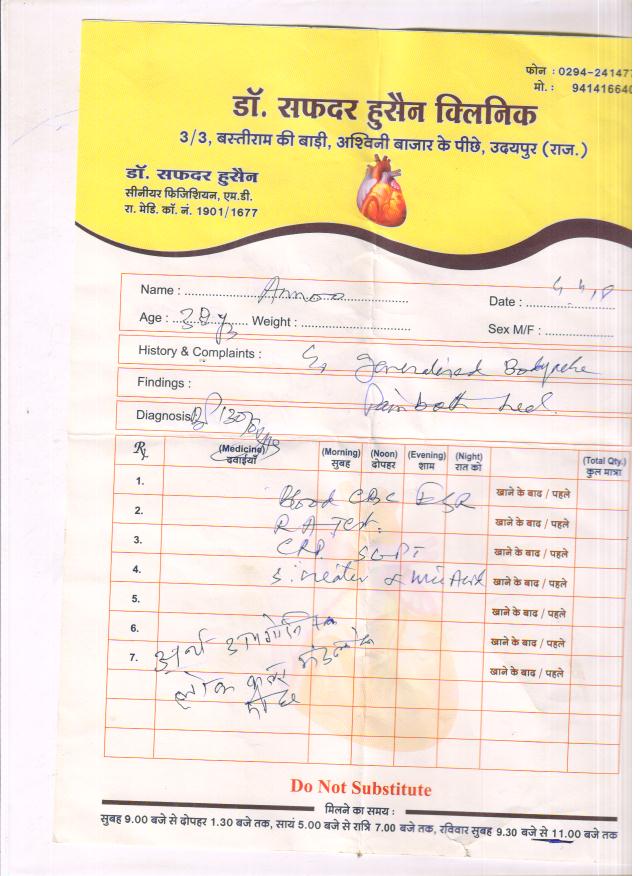 फोन : 0294-24147
मो. : 941416640
डॉ. सफदर हुसैन क्लिनिक
3/3, बस्तीराम की बाड़ी, अश्विनी बाजार के पीछे, उदयपुर (राज.)
डॉ. सफदर हुसैन
सीनीयर फिजिशियन, एम.डी.
रा. मेडि. कॉ. नं. 1901/1677
Name :
Date :
Age : Weight :
Sex M/F :
History & Complaints : Generalised Bodyache
Findings : Pain both heel.
Diagnosis 130/
Rx (Medicine) (Morning) (Noon) (Evening) (Night) (Total Qty.)
दवाईयाँ सुबह दोपहर शाम रात को कुल मात्रा
1. खाने के बाद / पहले
Blood CBC ESR
2. खाने के बाद / पहले
RA Test.
3. खाने के बाद / पहले
CRP SGPT
4. खाने के बाद / पहले
5. खाने के बाद / पहले
6. खाने के बाद / पहले
7. खाने के बाद / पहले
Do Not Substitute
मिलने का समय :
सुबह 9.00 बजे से दोपहर 1.30 बजे तक, सायं 5.00 बजे से रात्रि 7.00 बजे तक, रविवार सुबह 9.30 बजे से 11.00 बजे तक